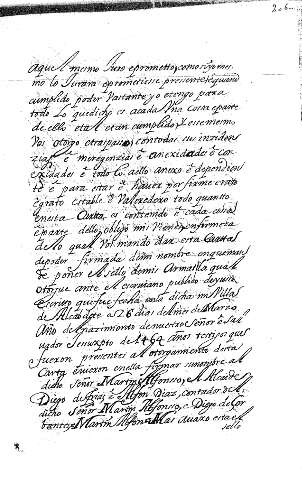 aquel mesmo Juro eprometto, como sy yo mes
mo lo Jurara eprometiesse presente
cumplido poder Vastante y o otorgo para
todo lo que dicho es acada Una cosa eparte
de ello etal etan cumplido, 
Vos otorgo etraspaso, con todas sus inciden
zias é mergenzias é anexidades é co
nexidades é todo lo aello anexo é dependien
te é para estar é haver por firme erato
é grato estable é Valoredero todo quanto
en esta Carta es contenido é cada cosa
é parte dello, obligo mis Vienes enfirmeza
de lo qual Vos mando dar esta Carta
de poder firmada de mi nombre
poner el Sello de mis Armas la qual
otorgue ante el escrivano publico
escrito que fue fecha en la dicha mi Villa
de Alcaudete a 26 dias del mes de Marzo
Año del Nazimiento de nuestro Señor é Sal
vador Jesuxpto de 1464 años testigos que
a fueron presentes al otorgamiento desta
Carta é vieron en ella firmar su nombre al
dicho Señor Martin Alfonso, el Alcaide
Diego de é Alfon Diaz, contador del
dicho Señor Martin Alfonso, e Diego de Cor
Martin Alfonso
sello